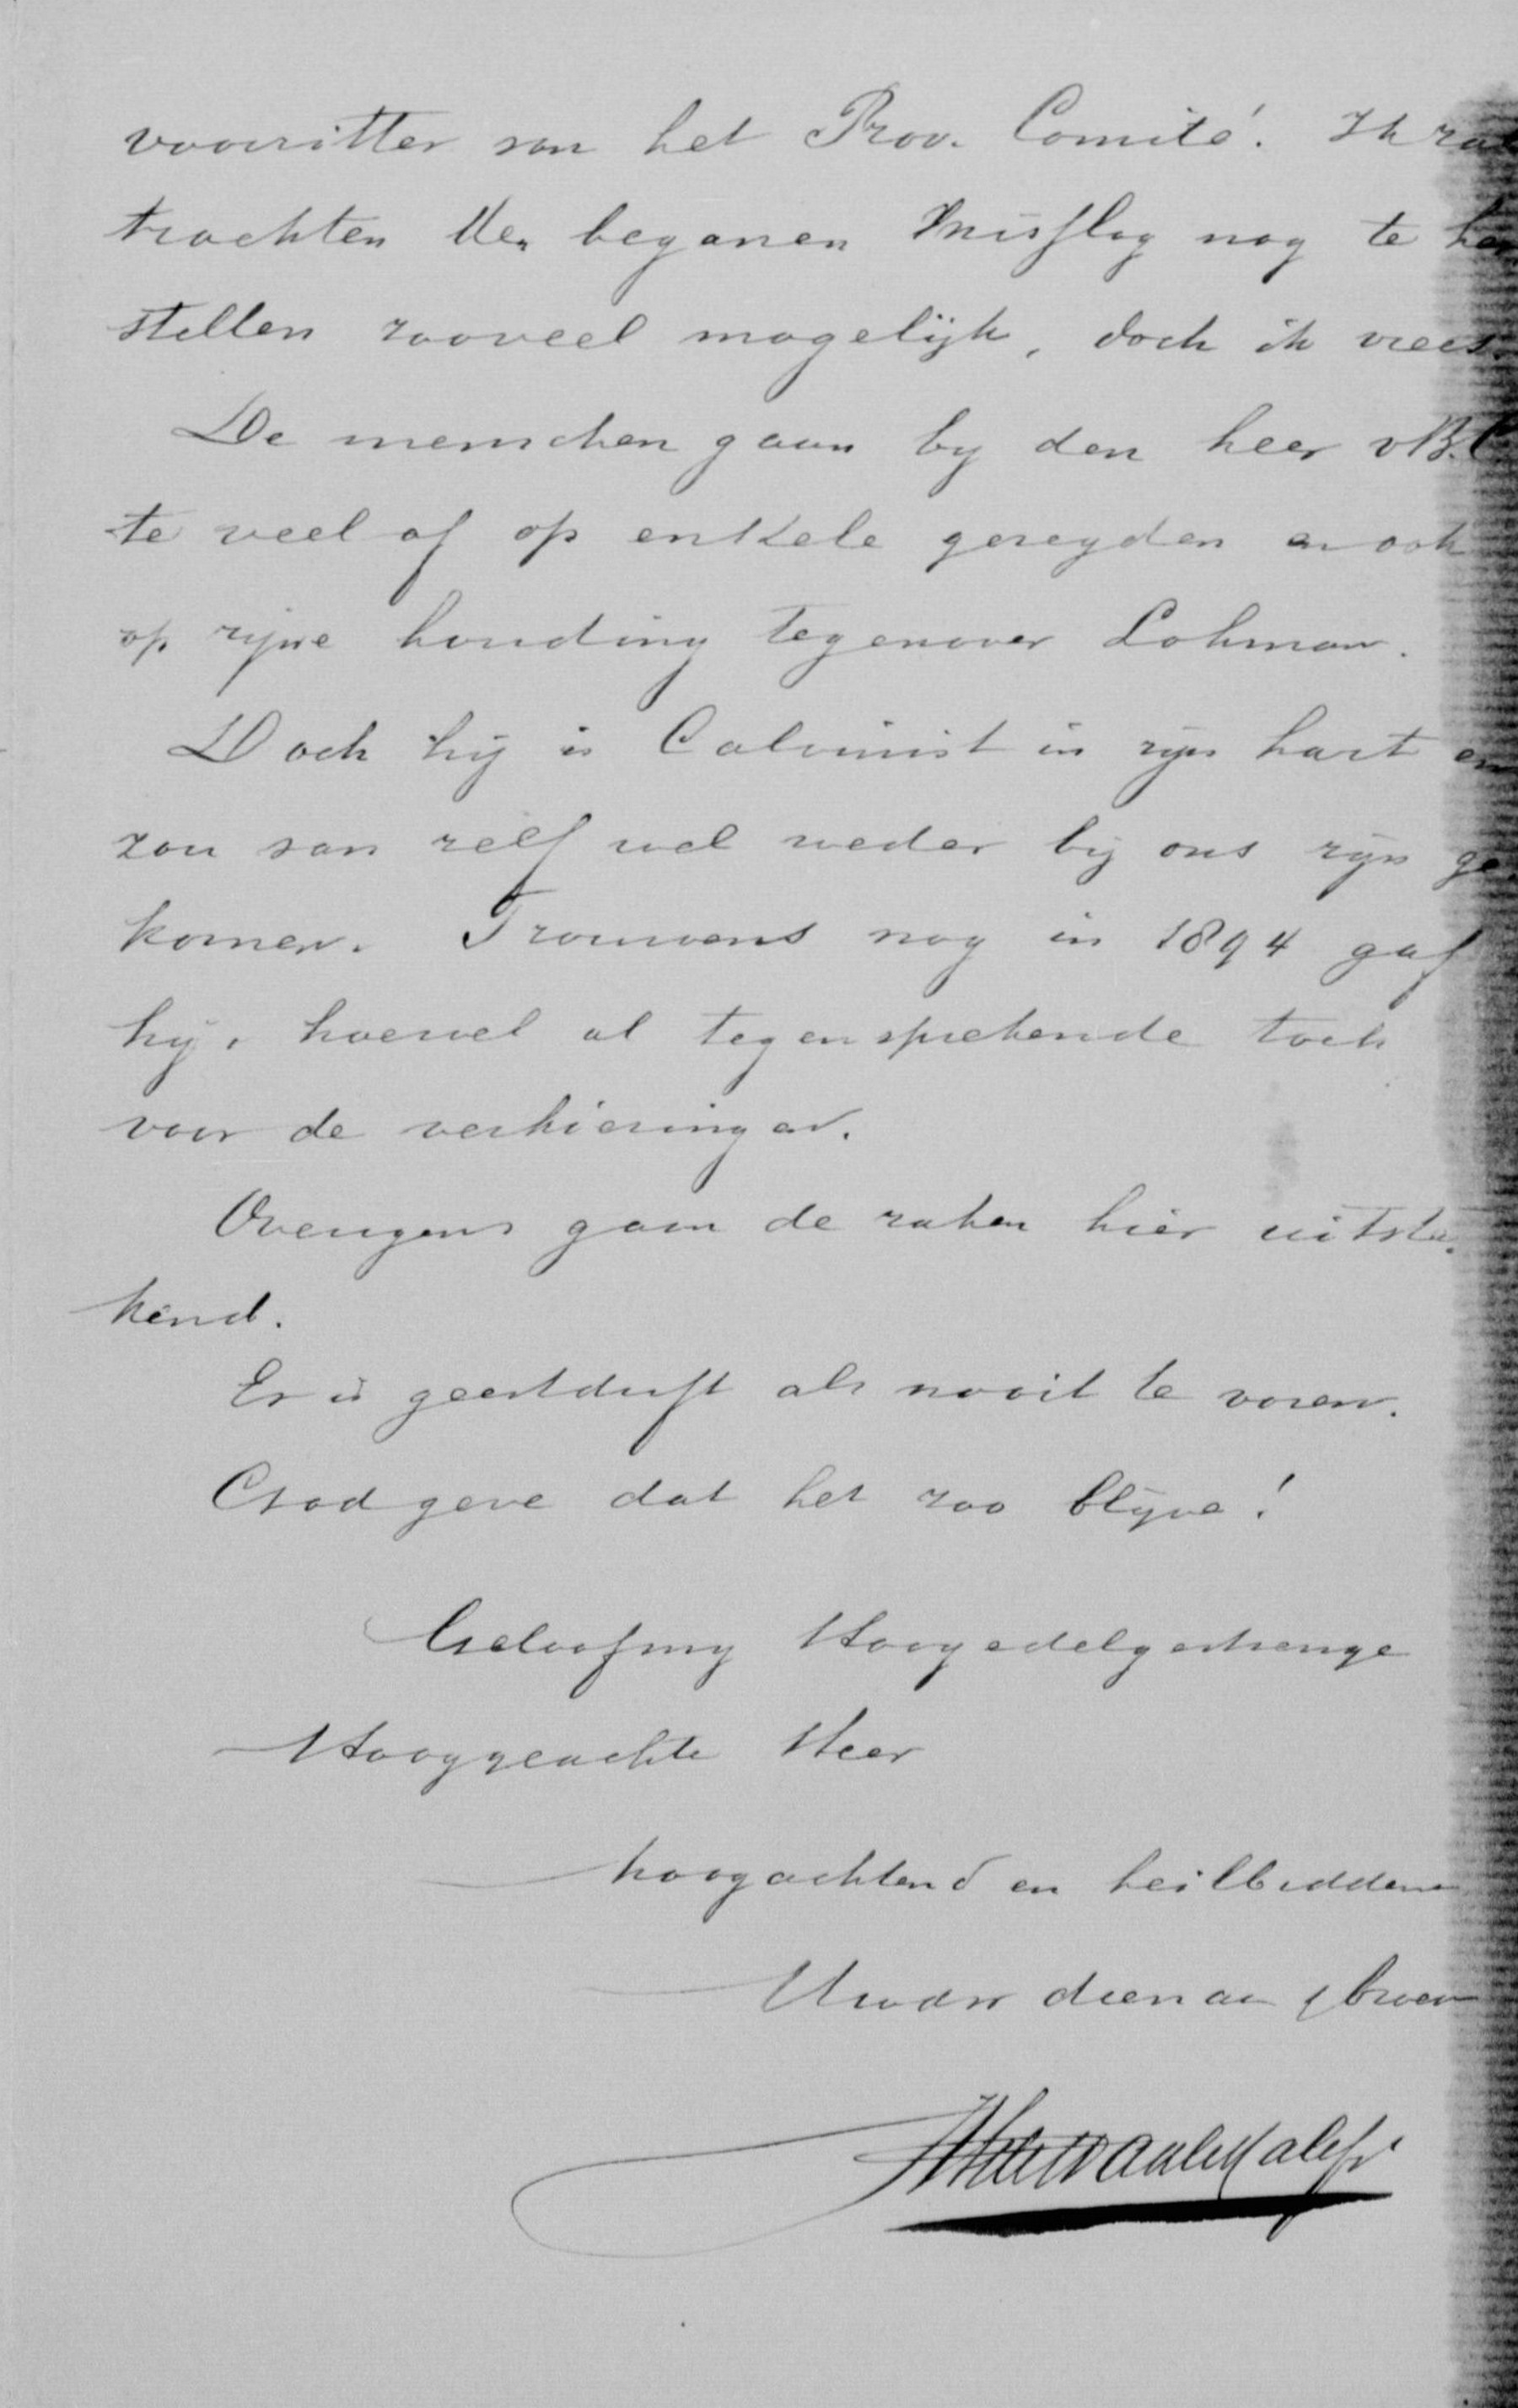 voorzitter van het Prov. Comité. Ik zal
trachten den beganen misslag nog te her
stellen zooveel mogelijk, doch ik vrees.
De menschen gaan by den heer vB.
te veel af op enkele gezegden en ook
op zijne houding tegenover Lohman.
Doch hij is Calvinist in zijn hart en
zou van zelf wel weder bij ons zijn ge
komen. Trouwens nog in 1894 gaf
hij, hoewel al tegensprekende toch
voor de verkiezingen.
Overigens gaan de zaken hier uitste.
kend.
Er is geestdrift als nooit te voren.
God geve dat het zoo blijve!
Geloof my Hoogedelgestrenge
Hooggeachte Heer
hoogachtend en heilbiddend
Uwdw dienaar